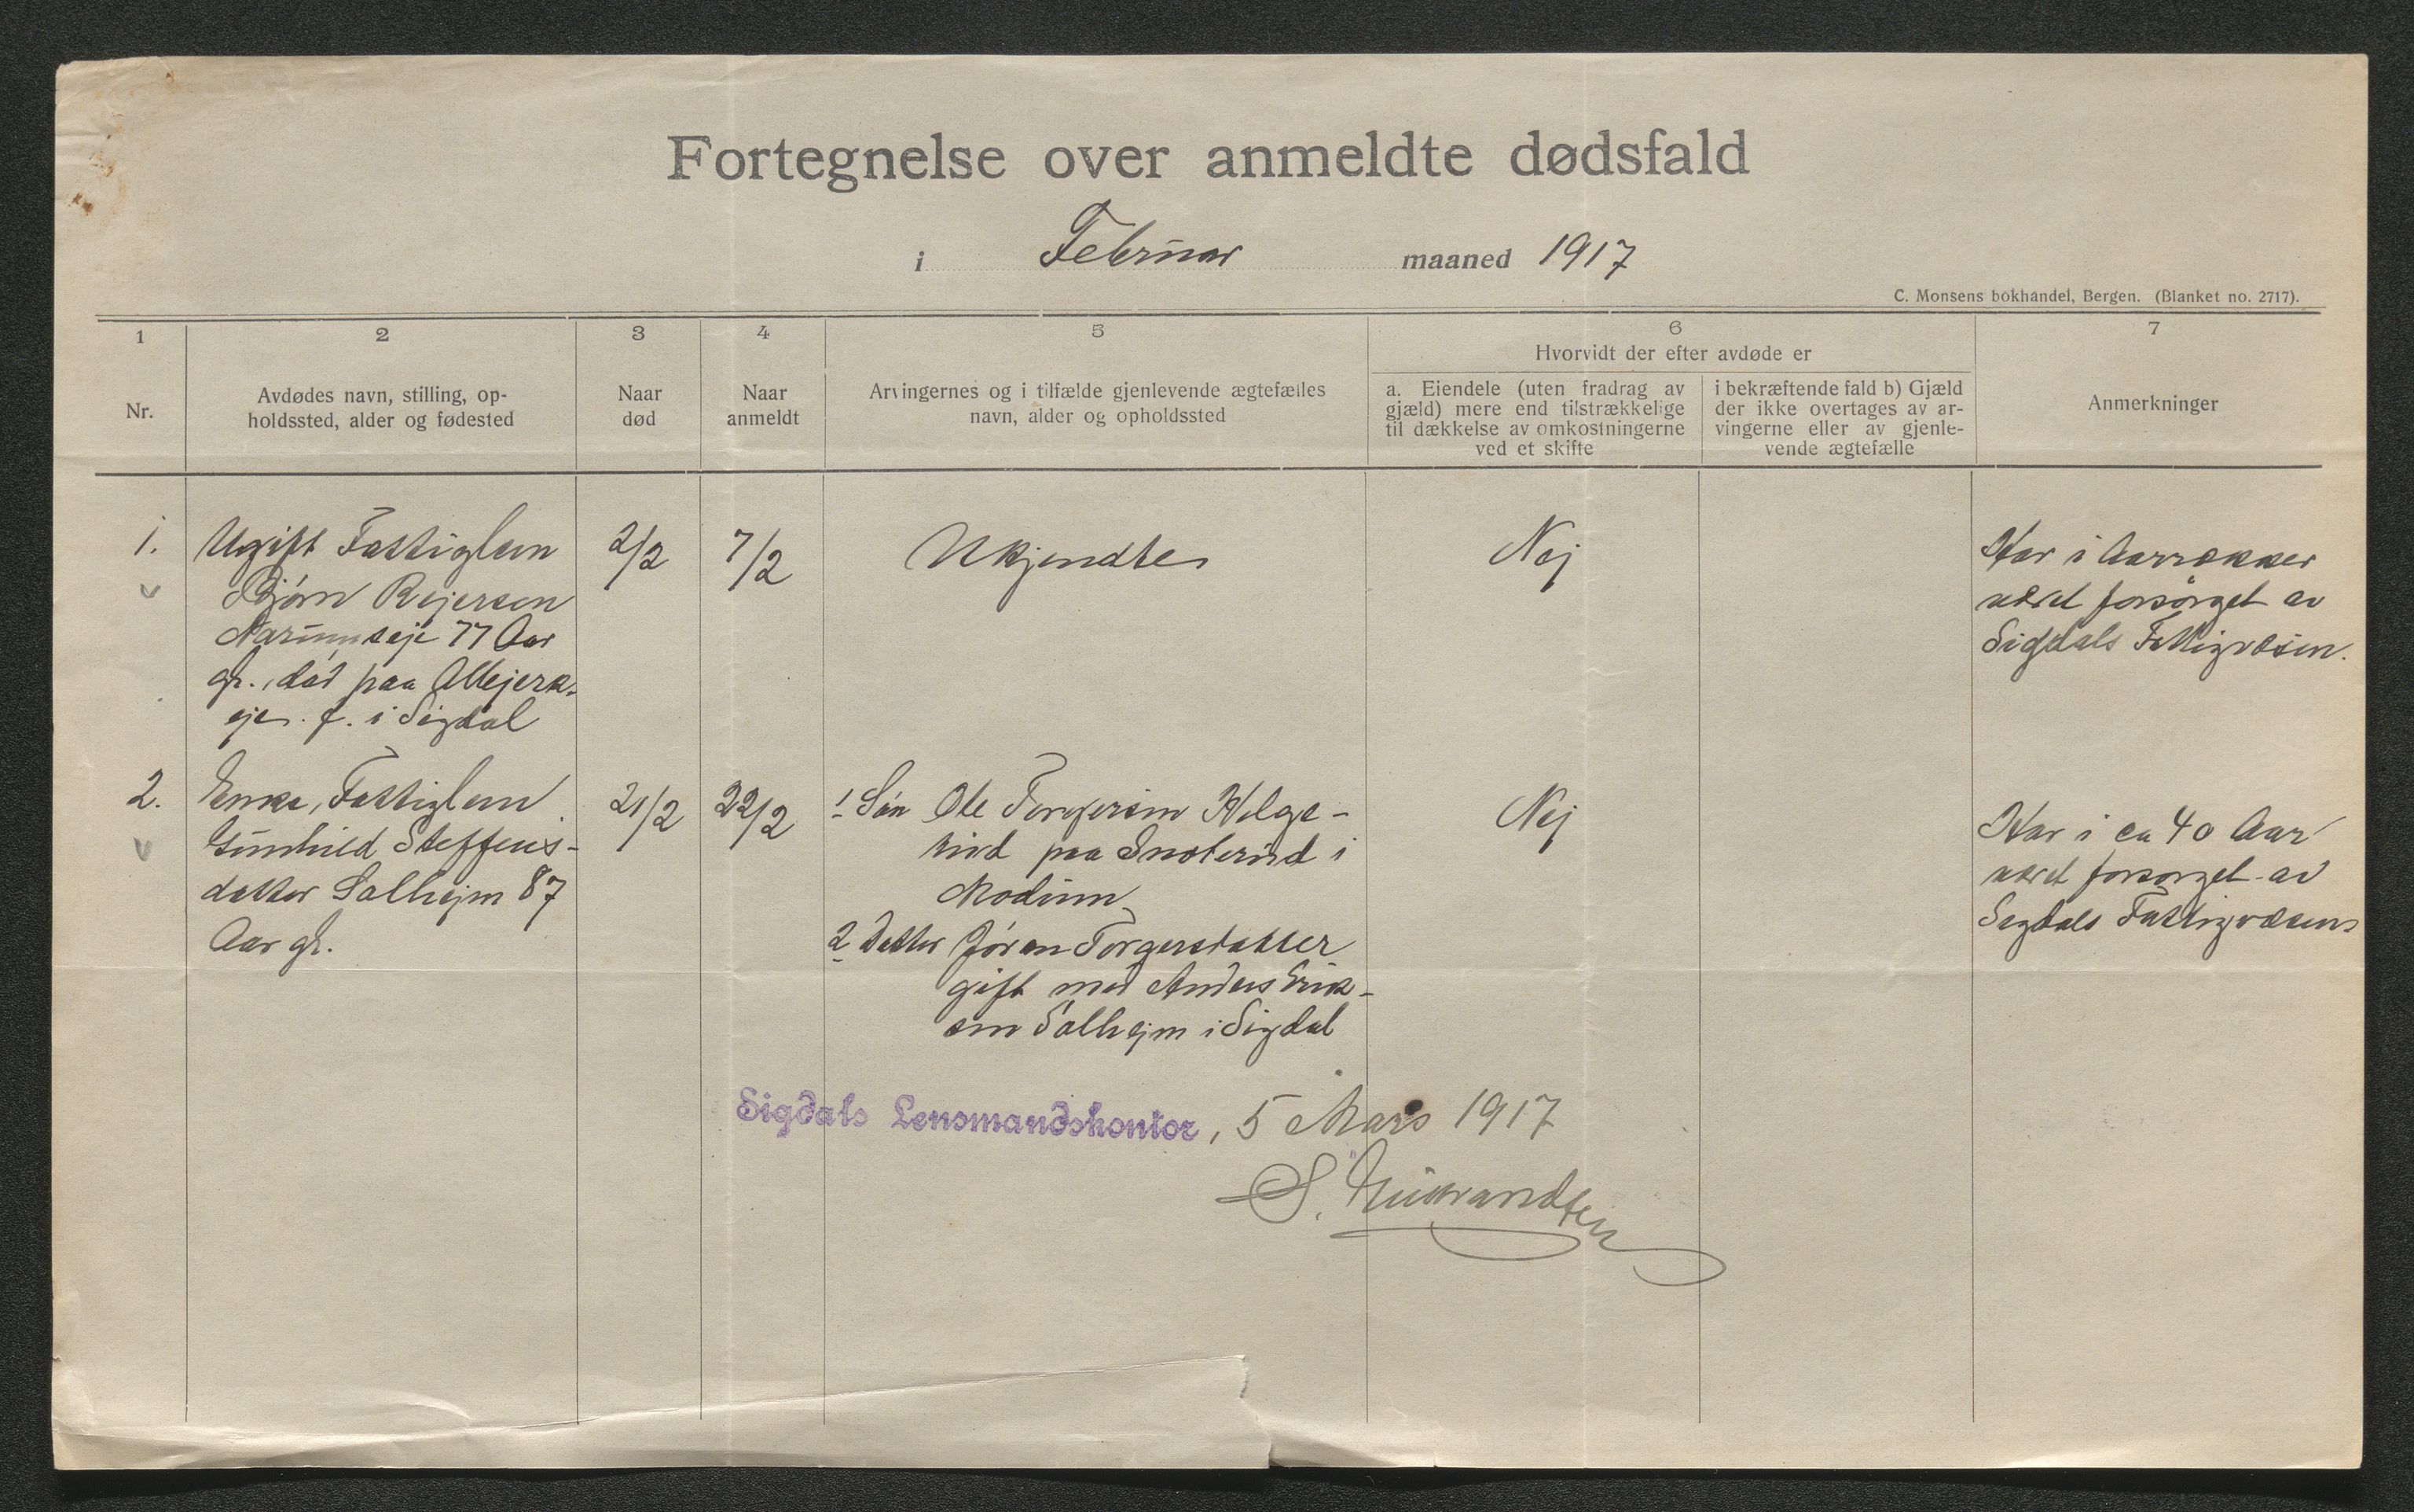 Fortegnelse over anmeldte dødsfald
i Februar maaned 1917
C. Monsens bokhandel, Bergen. (Blanket no. 2717).
1
Nr.
2
Avdødes navn, stilling, op-
holdssted, alder og fødested
3
Naar
død
4
Naar
anmeldt
5
Arvingernes og i tilfælde gjenlevende ægtefælles
navn, alder og opholdssted
6
Hvorvidt der efter avdøde er
a. Eiendele (uten fradrag av
gjæld) mere end tilstrækkelige
til dækkelse av omkostningerne
ved et skifte
i bekræftende fald b) Gjæld
der ikke overtages av ar-
vingerne eller av gjenle-
vende ægtefælle
7
Anmerkninger
1.
Ugift Fattiglem
Bjørn Rejersen
77 Aar
gl., død paa
eje. f. i Sigdal
2/2
7/2
Ukjendte
Nej
Har i Aarrækker
været forsørget av
Sigdals Fattigvæsen.
2.
Enke, Fattiglem
Gunhild Steffens-
datter Solhejm 87
Aar gl.
21/2
22/2
1 Søn Ole Torgersen Helge-
rud paa Snarerud i
Modum
2 Datter Jøran Torgersdatter
gift med Anders Erik-
sen Solhejm i Sigdal
Nej
Har i ca 40 Aar
været forsørget av
Sigdals Fattigvæsen
Sigdals Lensmandskontor, 5 Mars 1917